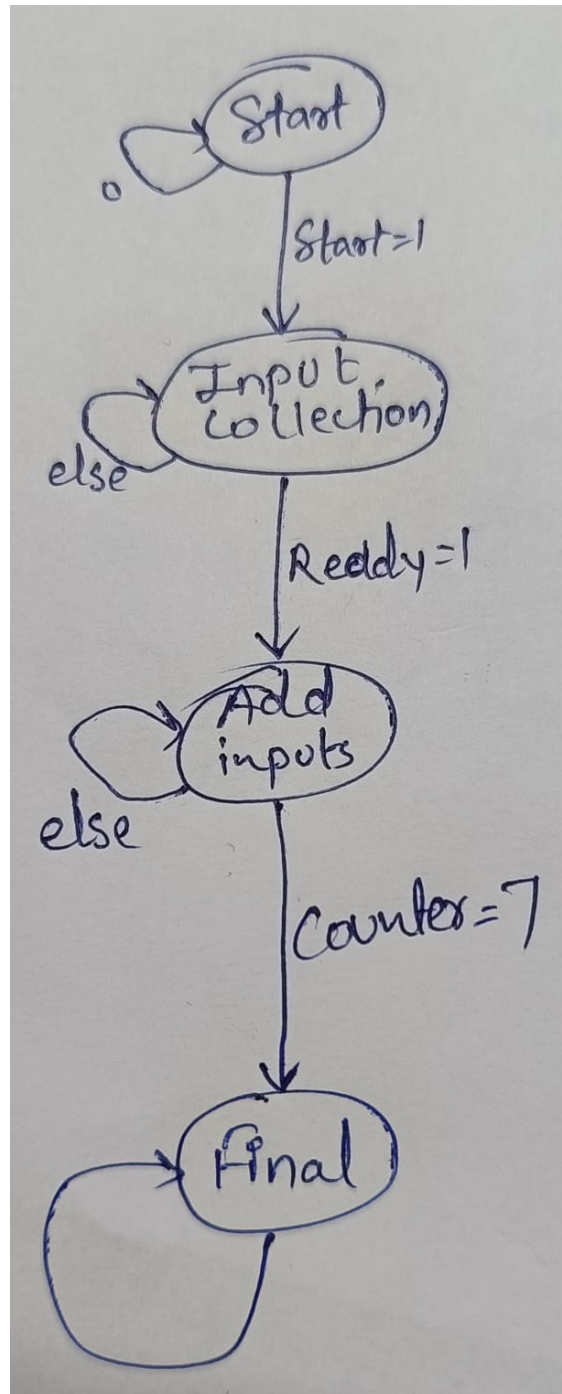 Start
0
Start=1
Input
collection
else
Reddy=1
Add
inputs
else
Counter=7
Final